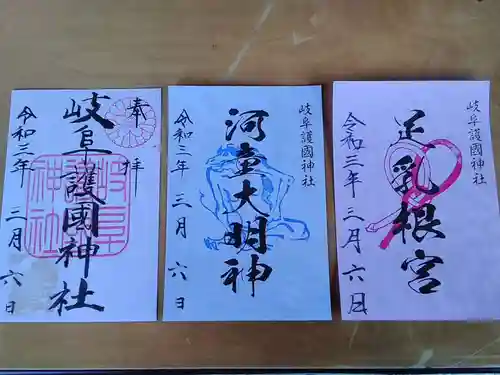 奉拝
岐阜護國神社
令和三年 三月 六日
岐阜護國神社
河童大明神
令和三年 三月 六日
岐阜護國神社
足乳根宮
令和三年 三月 六日